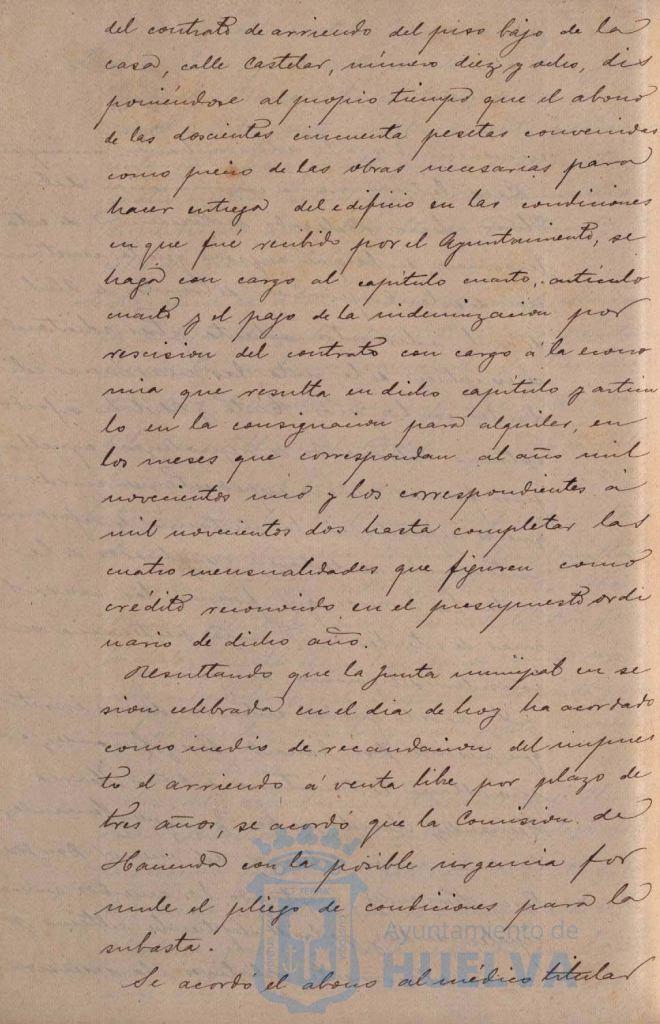 del contrato de arriendo del piso bajo de la
casa, calle Castelar, número diez y ocho, dis
poniéndose al propio tiempo que el abono
de las doscientas cincuenta pesetas convenidas
como precio de las obras necesarias para
hacer entrega del edificio en las condiciones
en que fué recibido por el Ayuntamiento, se
haga con cargo al capítulo cuarto, artículo
cuarto y el pago de la indemnizacion por
rescision del contrato con cargo á la econo
mia que resulta en dicho capítulo y artícu
lo en la consignacion para alquiler, en
los meses que correspondan al año mil
novecientos uno y los correspondientes á
mil novecientos dos hasta completar las
cuatro mensualidades que figuren como
crédito reconocido en el presupuesto ordi
nario de dicho año.
Resultando que la Junta municipal en se
sion celebrada en el dia de hoy ha acordado
como medio de recaudacion del impues
to el arriendo á venta libre por plazo de
tres años, se acordó que la Comision de
Hacienda con la posible urgencia for
mule el pliego de condiciones para la
subasta.
Se acordó el abono al médico titular
Ayuntamiento de
HUELVA